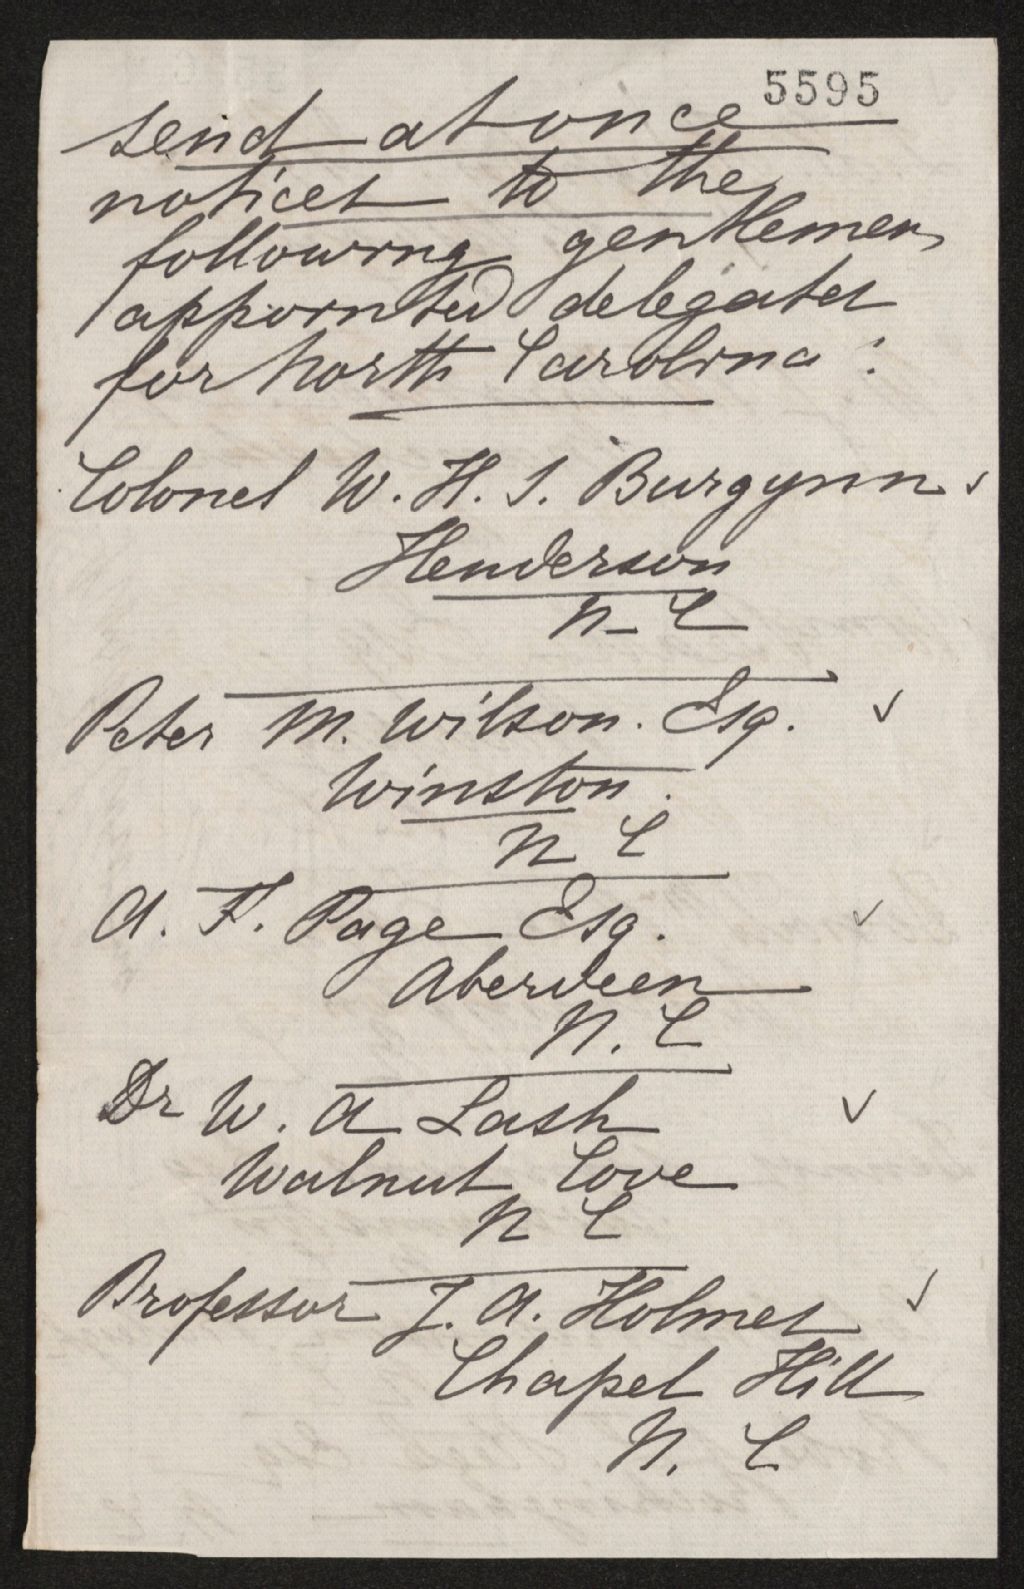 5595
send at once
notices to the
following gentlemen
appointed delegates
for North Carolina :
Colonel W. H. S. Burgynn
Henderson
N. C
Peter M. Wilson. Esq.
Winston.
N C
A. F. Page Esq.
Aberdeen
N. C
Dr W. A Lash
Walnut Cove
N C
Professor J. A. Holmes
Chapel Hill
N. C